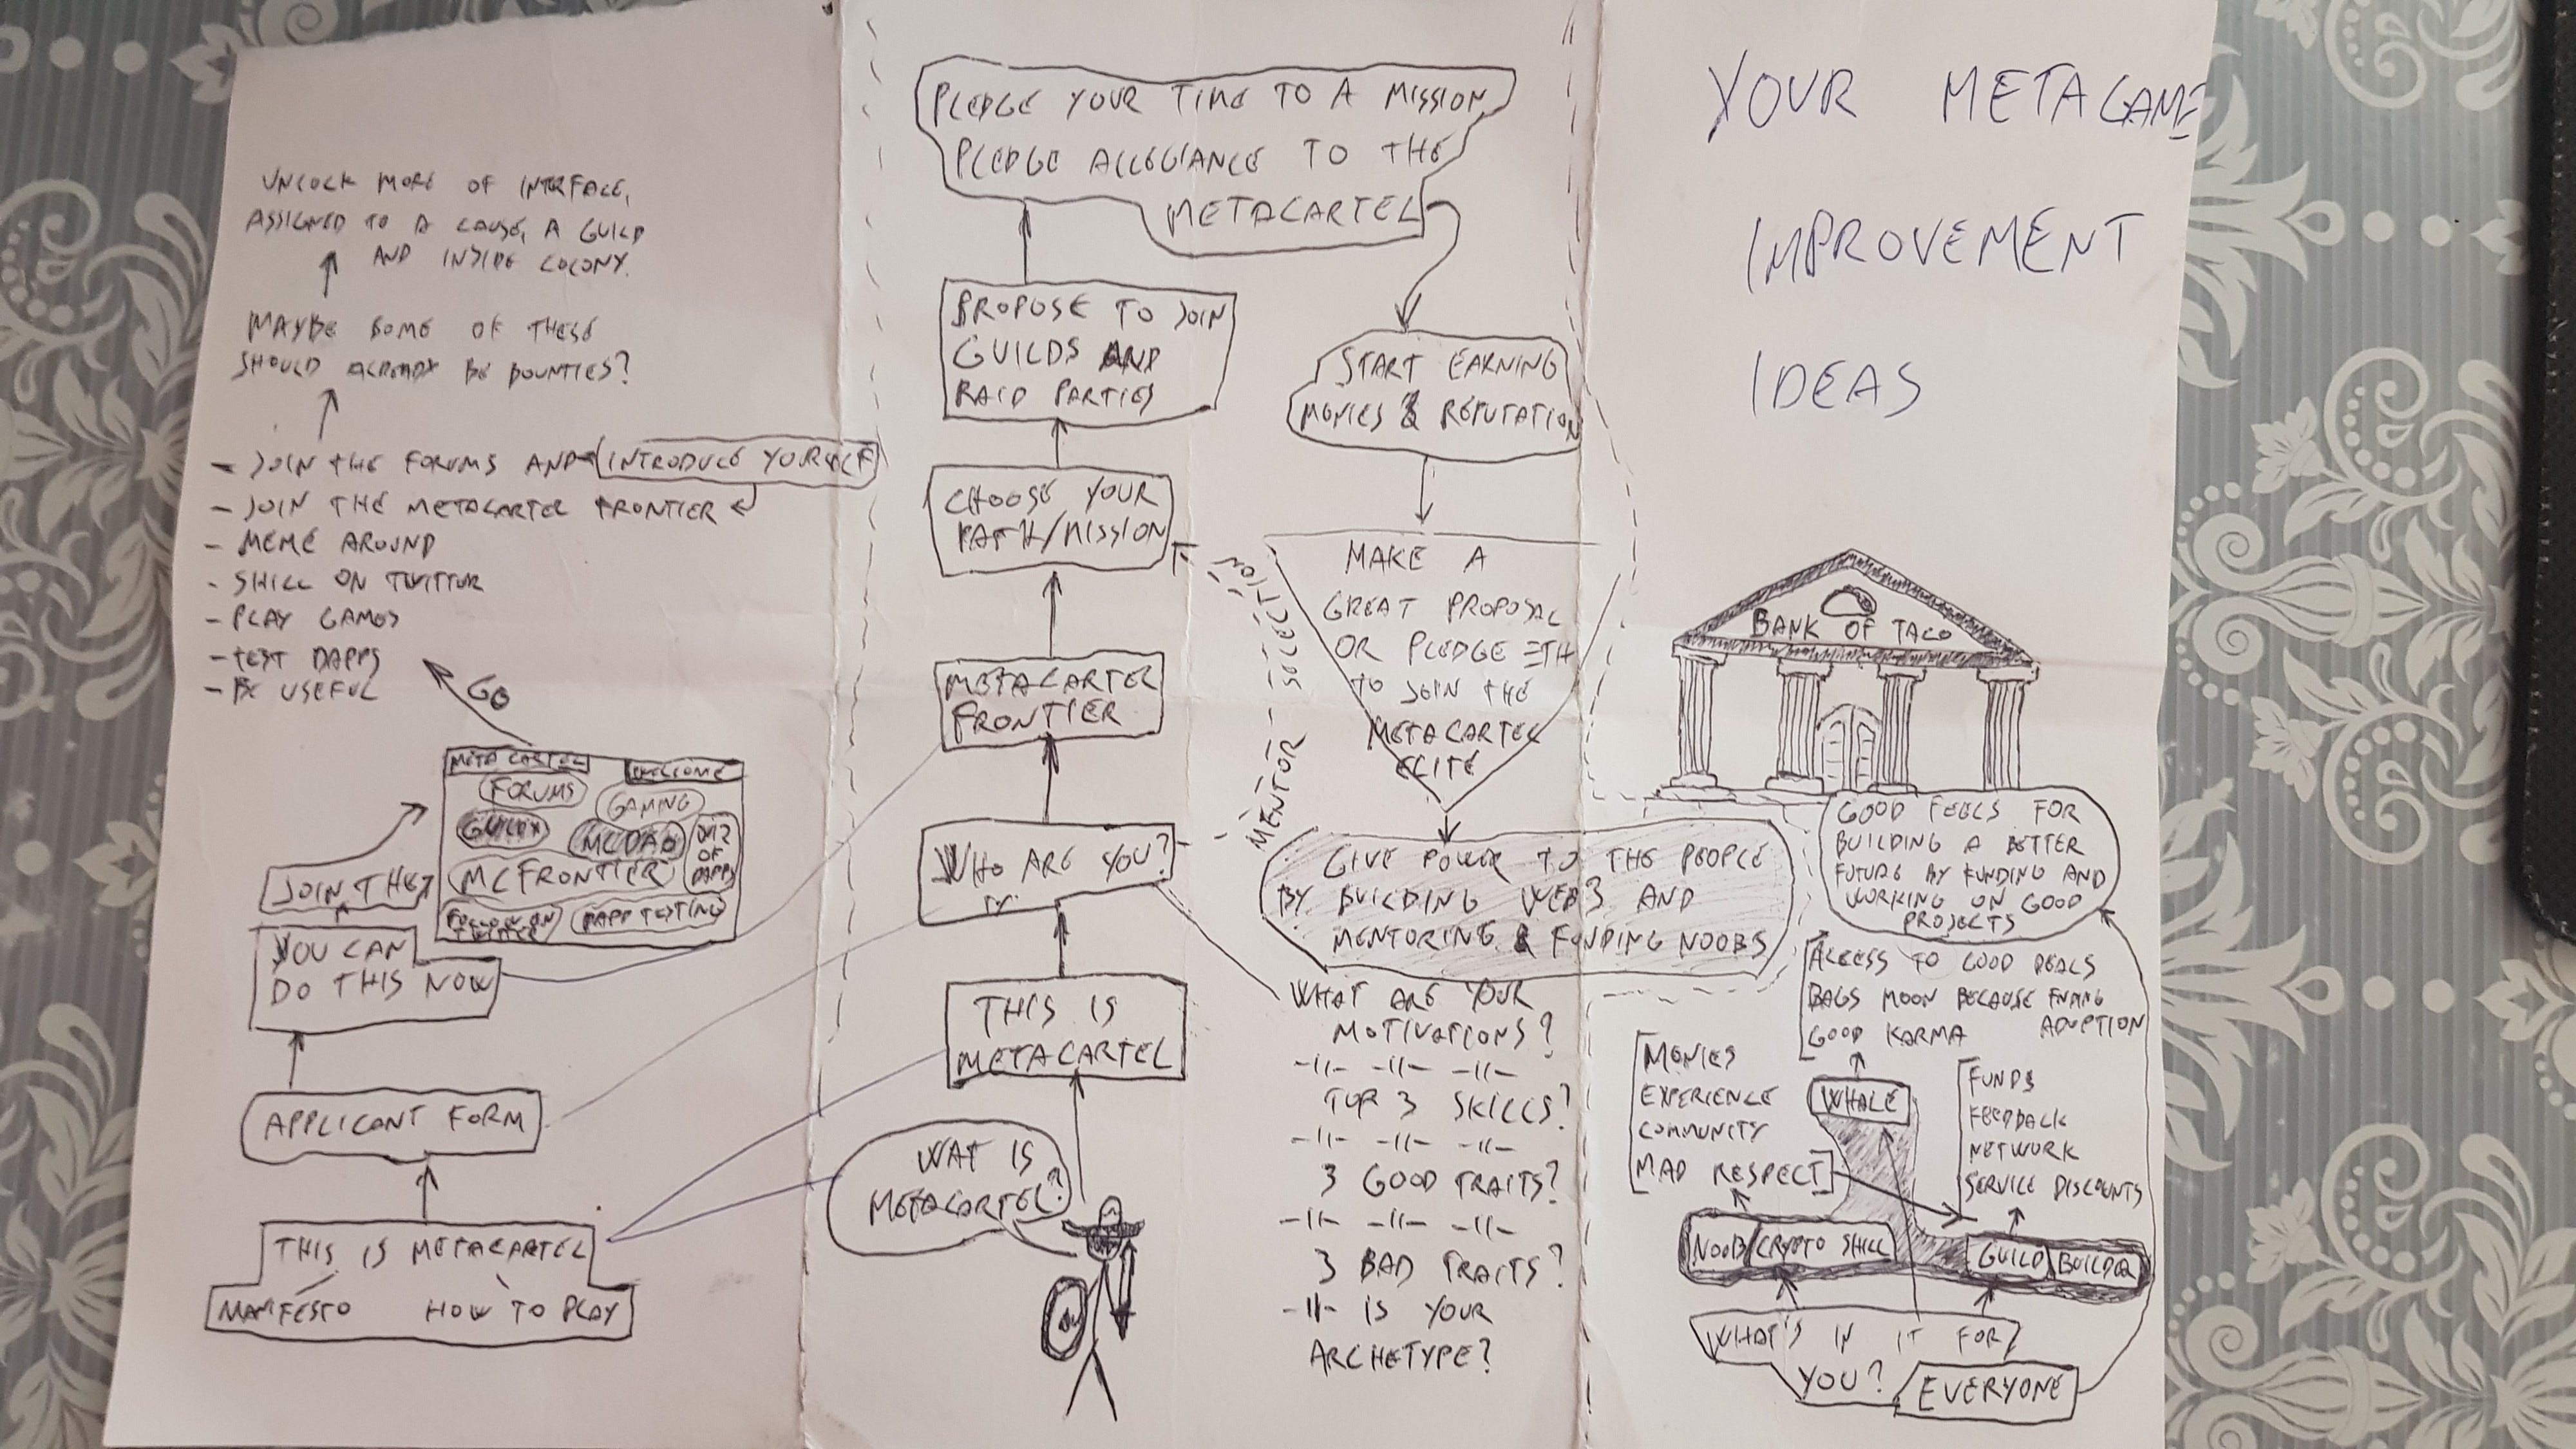 UNLOCK MORE OF INTRFACE,
ASSIGNED TO A CAUSE, A GUILD
AND INSIDE COLONY.
MAYBE SOME OF THESE
SHOULD ALREADY BE BOUNTIES?
- JOIN THE FORUMS AND INTRODUCE YOURSELF
- JOIN THE METACARTEL FRONTIER
- MEME AROUND
- SHILL ON TWITTUR
- PLAY GAMES
- TEST DAPPS
- BE USEFUL
GO
META CARTEL
WELCOME
FORUMS
GAMING
GUILDS
MCDAO
OF
DAPPS
MCFRONTIER
FOLLOW ON
TWITTER
DAPP TESTING
JOIN THE
YOU CAN
DO THIS NOW
APPLICANT FORM
THIS IS METACARTEL
MANIFESTO HOW TO PLAY
PLEDGE YOUR TIME TO A MISSION,
PLEDGE ALLEGIANCE TO THE
METACARTEL
PROPOSE TO JOIN
GUILDS AND
RAID PARTIES
CHOOSE YOUR
PATH/MISSION
METACARTEL
FRONTIER
WHO ARE YOU?
THIS IS
METACARTEL
WAT IS
METACARTEL?
START EARNING
MONIES & REPUTATION
MAKE A
GREAT PROPOSAL
OR PLEDGE ETH
TO JOIN THE
METACARTEL
ELITE
MENTOR - SELECTION
GIVE POWER TO THE PEOPLE
BY BUILDING WEB3 AND
MENTORING & FUNDING NOOBS
WHAT ARE YOUR
MOTIVATIONS?
-11- -11- -11-
TOP 3 SKILLS?
-11- -11- -11-
3 GOOD TRAITS?
-11- -11- -11-
3 BAD TRAITS?
-11- IS YOUR
ARCHETYPE?
YOUR METAGAME
IMPROVEMENT
IDEAS
BANK OF TACO
GOOD FEELS FOR
BUILDING A BETTER
FUTURE BY FUNDING AND
WORKING ON GOOD
PROJECTS
ACCESS TO GOOD DEALS
BAGS MOON BECAUSE FNDING
GOOD KARMA ADUPTION
MONIES
EXPERIENCE
COMMUNITY
MAD RESPECT
WHALE
FUNDS
FEEDBACK
NETWORK
SERVICE DISCOUNTS
NOOB/CRYPTO SHILL
GUILD/BUILDER
WHAT'S IN IT FOR
YOU?
EVERYONE